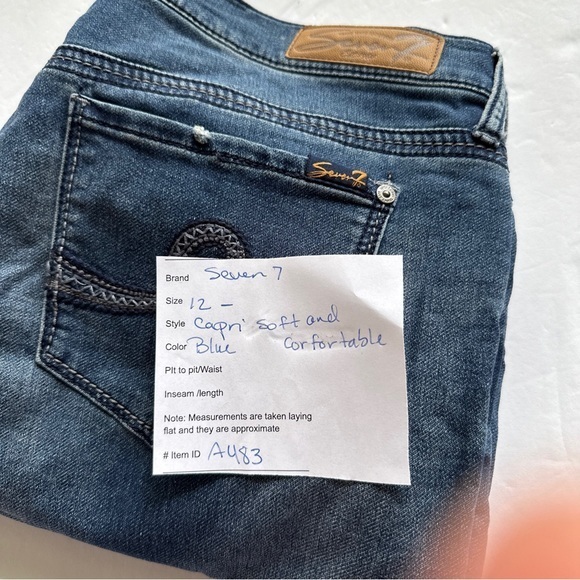 Seven7
Seven7
Brand Seven 7
Size 12 -
Style Capri soft and
Color Blue corfortable
PIt to pit/Waist
Inseam /length
Note: Measurements are taken laying
flat and they are approximate
# Item ID A483